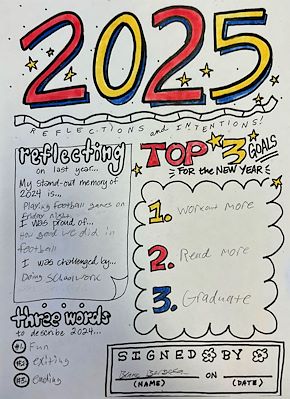 2025
REFLECTIONS and INTENTIONS!
reflecting
on last year...
My stand-out memory of
2024 is...
Playing football games on
Friday night
I was proud of...
How good we did in
football
I was challenged by...
Doing schoolwork
three words
to describe 2024...
#1. Fun
#2. exiting
#3. ending
TOP 3 GOALS
FOR the NEW YEAR
1. Workout more
2. Read more
3. Graduate
SIGNED BY
ON
(NAME) (DATE)